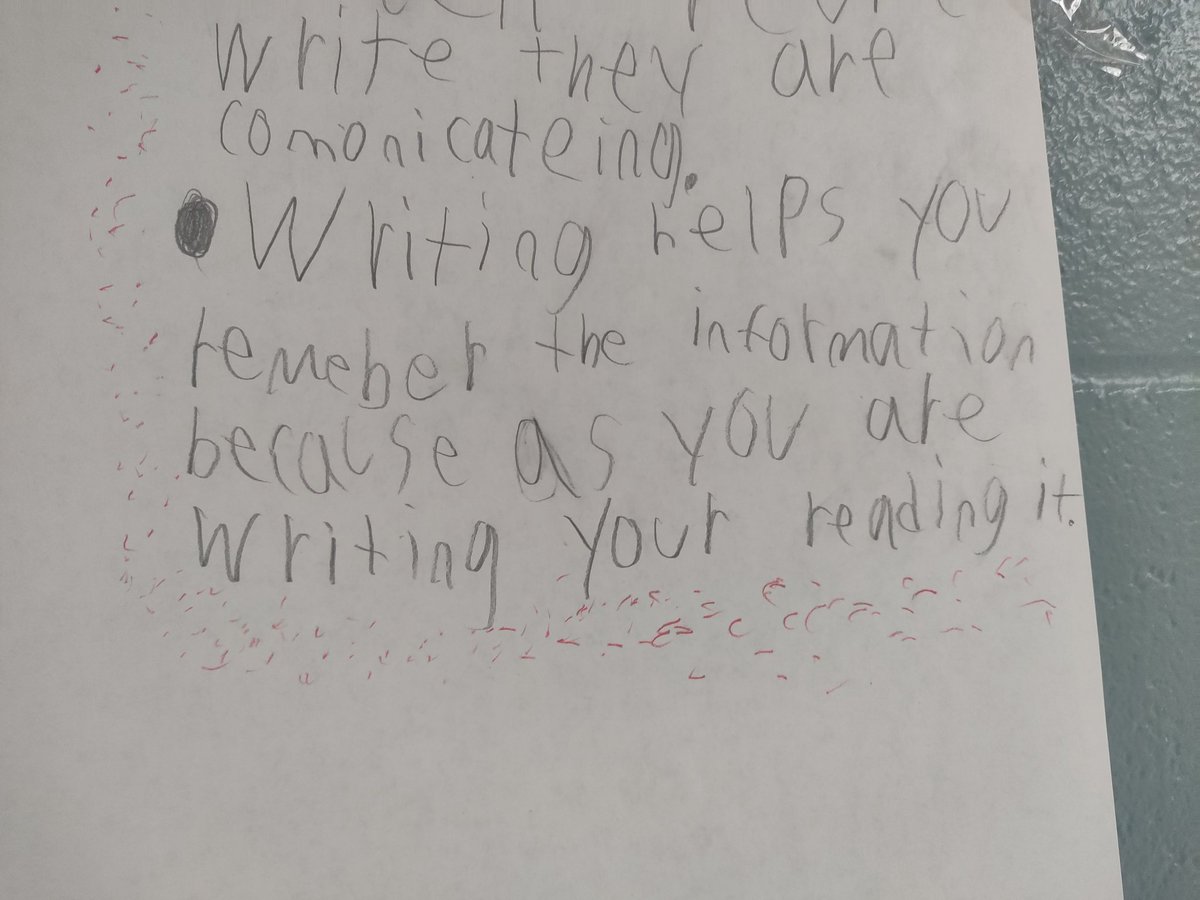 write they are
comonicateing.
Writing helps you
remeber the information
because as you are
writing your reading it.